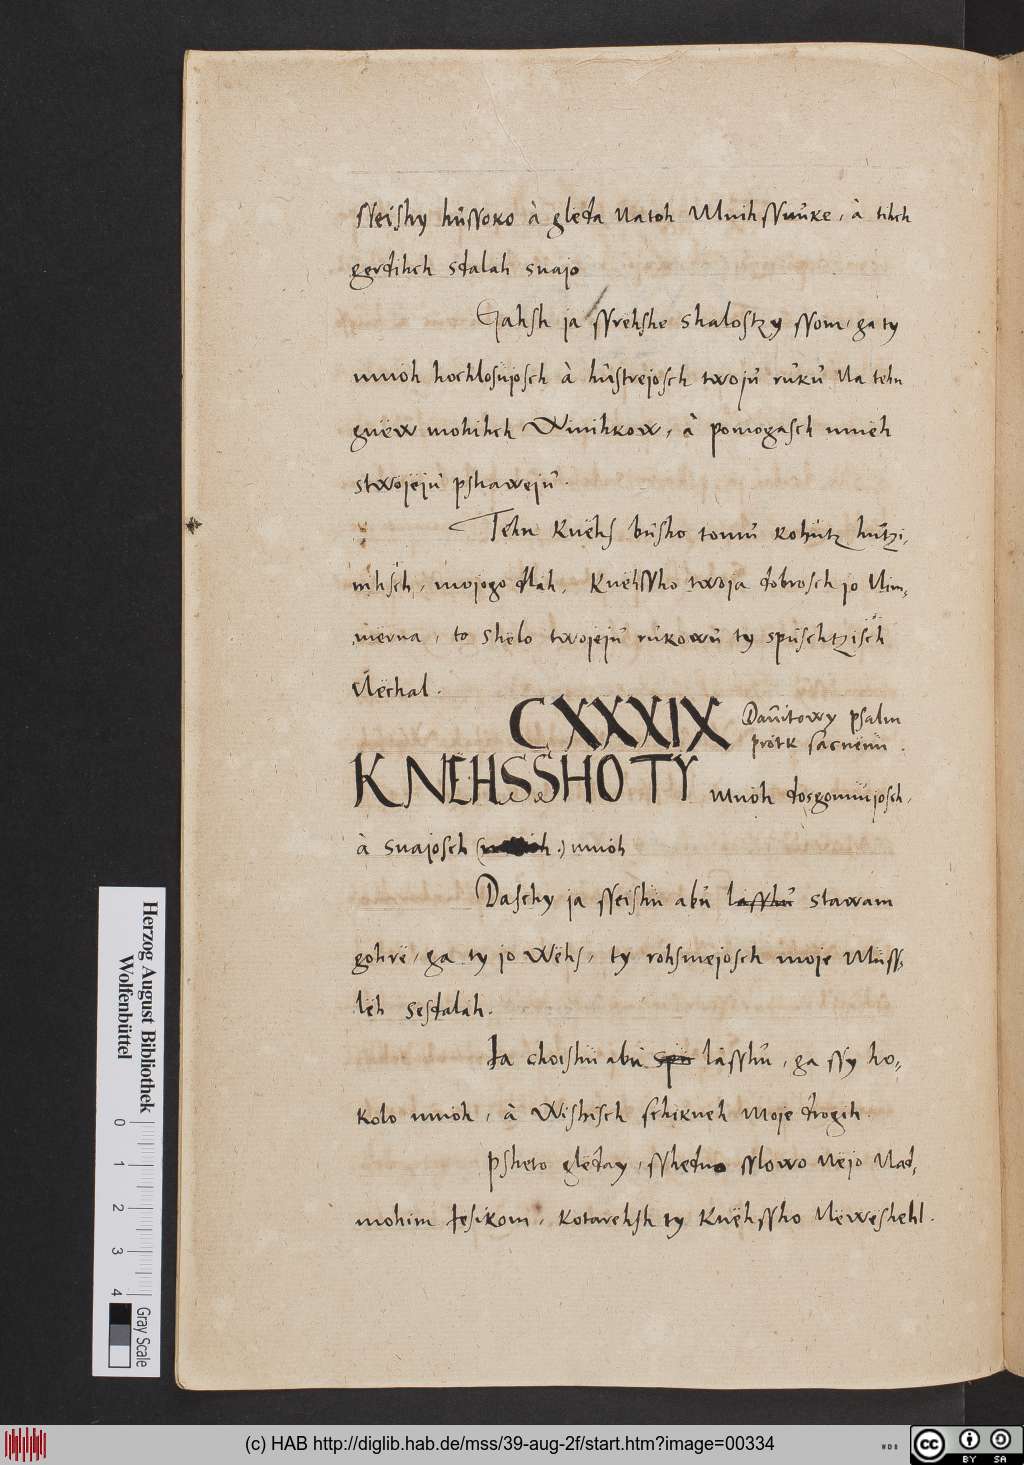 sſeiſhy hůſſoko à glèda Natoh Mnih ſſmůke, à tihch
gerdihch sdalah snajo
Gahsh ja ſſrëhſhe shaloſtzy ſſom, ga ty
mnöh hochloſujoſch à hůſtrejoſch twojů růků Na tehn
gnëw mohihch Winihkow, à pomogaſch mnëh
stwojejů pſhawejů.
Tehn Knëhſ bůſho tomů kohůtz hůtzi,
nihſch, mojogo dlah, Knëhſſho twoja dobroſch jo Nim,
merna, to shëlo twojejů růkowů ty spůſchtziſch
Nëchal.
CXXXIX Dauitowy pſalm
prötk ſacnëmů.
KNEHSSHO TY mnöh dosgomnůjoſch,
à snajoſch mnöh
Daſchy ja ſſeiſhů abů laſſhů stawam
gohrë, ga ty jo Wëhſ, ty rohſmejoſch moje Můſſ,
lëh seſdalah.
Ja choiſhů abů spů làſſhů, ga ſſy ho,
kolo mnöh, à Wiſhiſch ſchikneh Moje drogih.
Pſheto glëday, ſſhedno ſſlowo Nëjo Nad,
mohim Jeſikom, kotarehſh ty Knëhſſho Nëweſhehl.
Herzog August Bibliothek
Wolfenbüttel
0 1 2 3 4
Gray Scale
(c) HAB http://diglib.hab.de/mss/39-aug-2f/start.htm?image=00334
WDB
cc BY SA